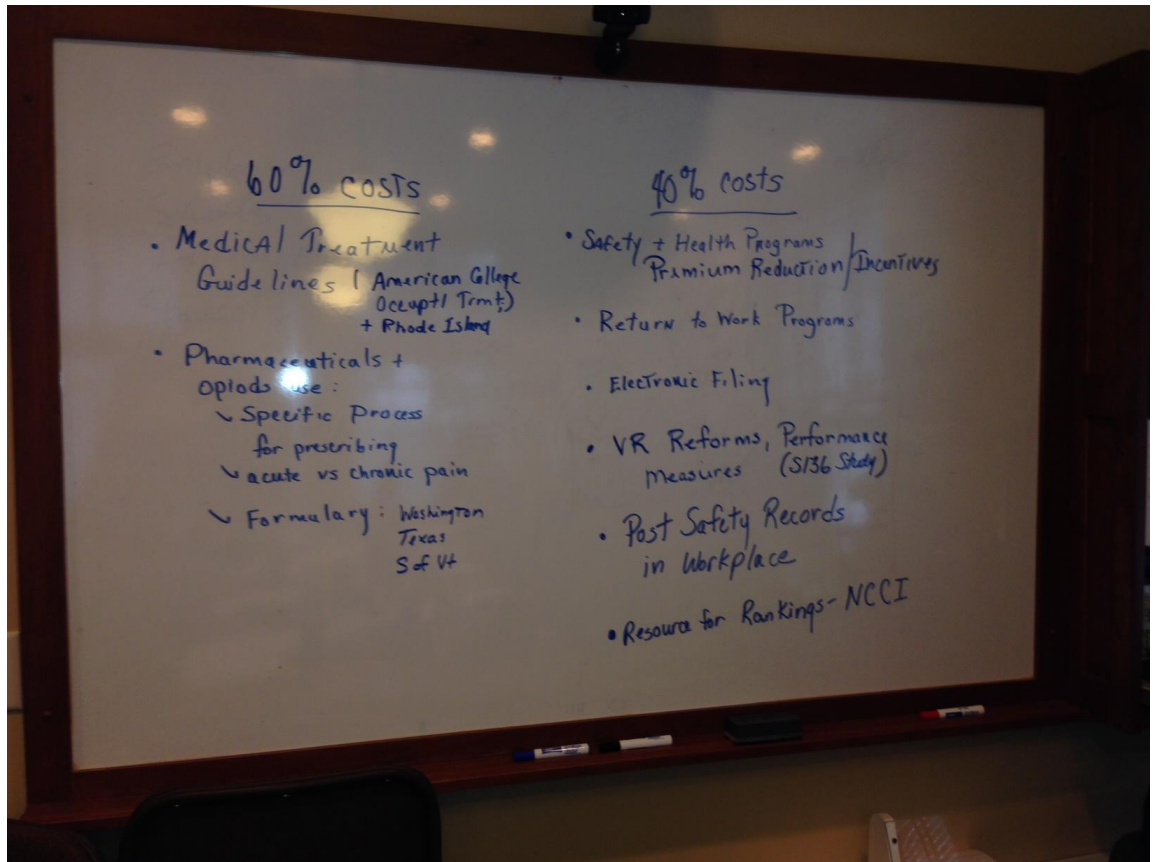 60% COSTS
• Medical Treatment
Guidelines ( American College
Occupt/l Trmt,)
+ Rhode Island
• Pharmaceuticals +
Opiods use :
✓ Specific Process
for prescribing
✓ acute vs chronic pain
✓ Formulary : Washington
Texas
S of Vt
40% costs
• Safety + Health Programs
Premium Reduction/Incentives
• Return to Work Programs
• Electronic Filing
• VR Reforms, Performance
measures (S136 Study)
• Post Safety Records
in Workplace
• Resource for Rankings - NCCI